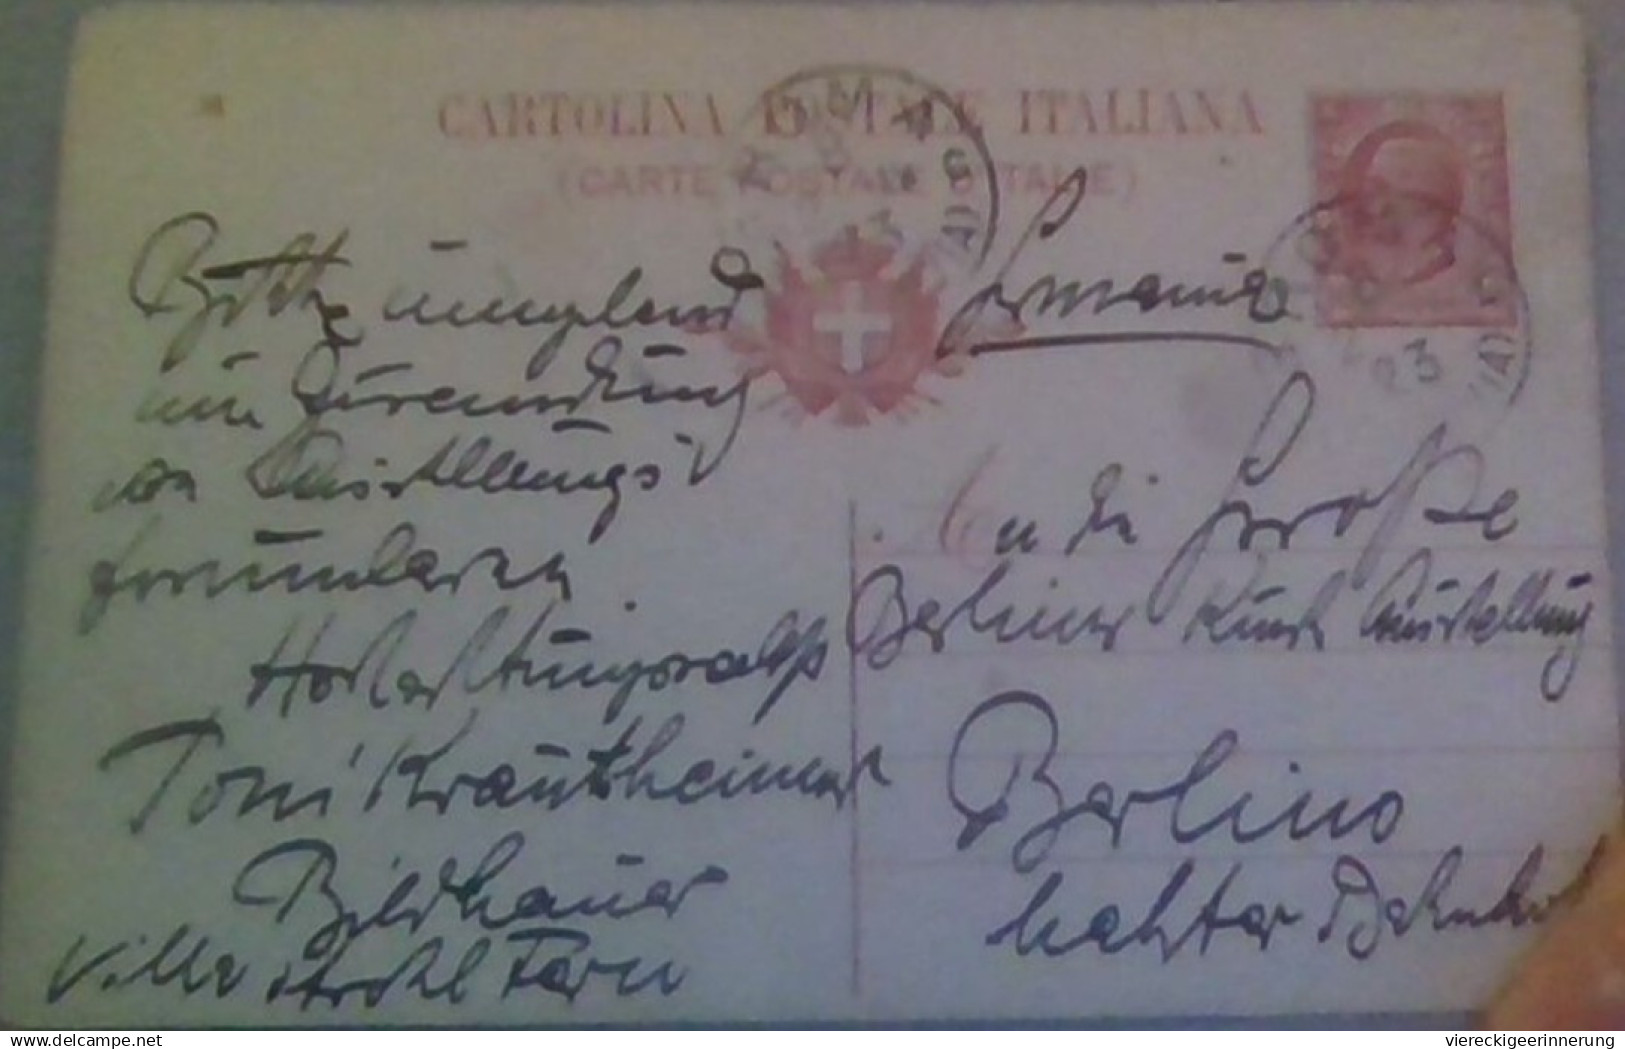 CARTOLINA POSTALE ITALIANA
(CARTE POSTALE D'ITALIE)
Germania
Bitte umgehend
um Zusendung
von Ausstellungs
formularen.
Hochachtungsvollst
Toni Krautheimer
Bildhauer
Villa Strohl Fern
An die Große
Berliner Kunst Ausstellung
Berlino
Lehrter Bahnhof
23
23
viereckigeerinnerung